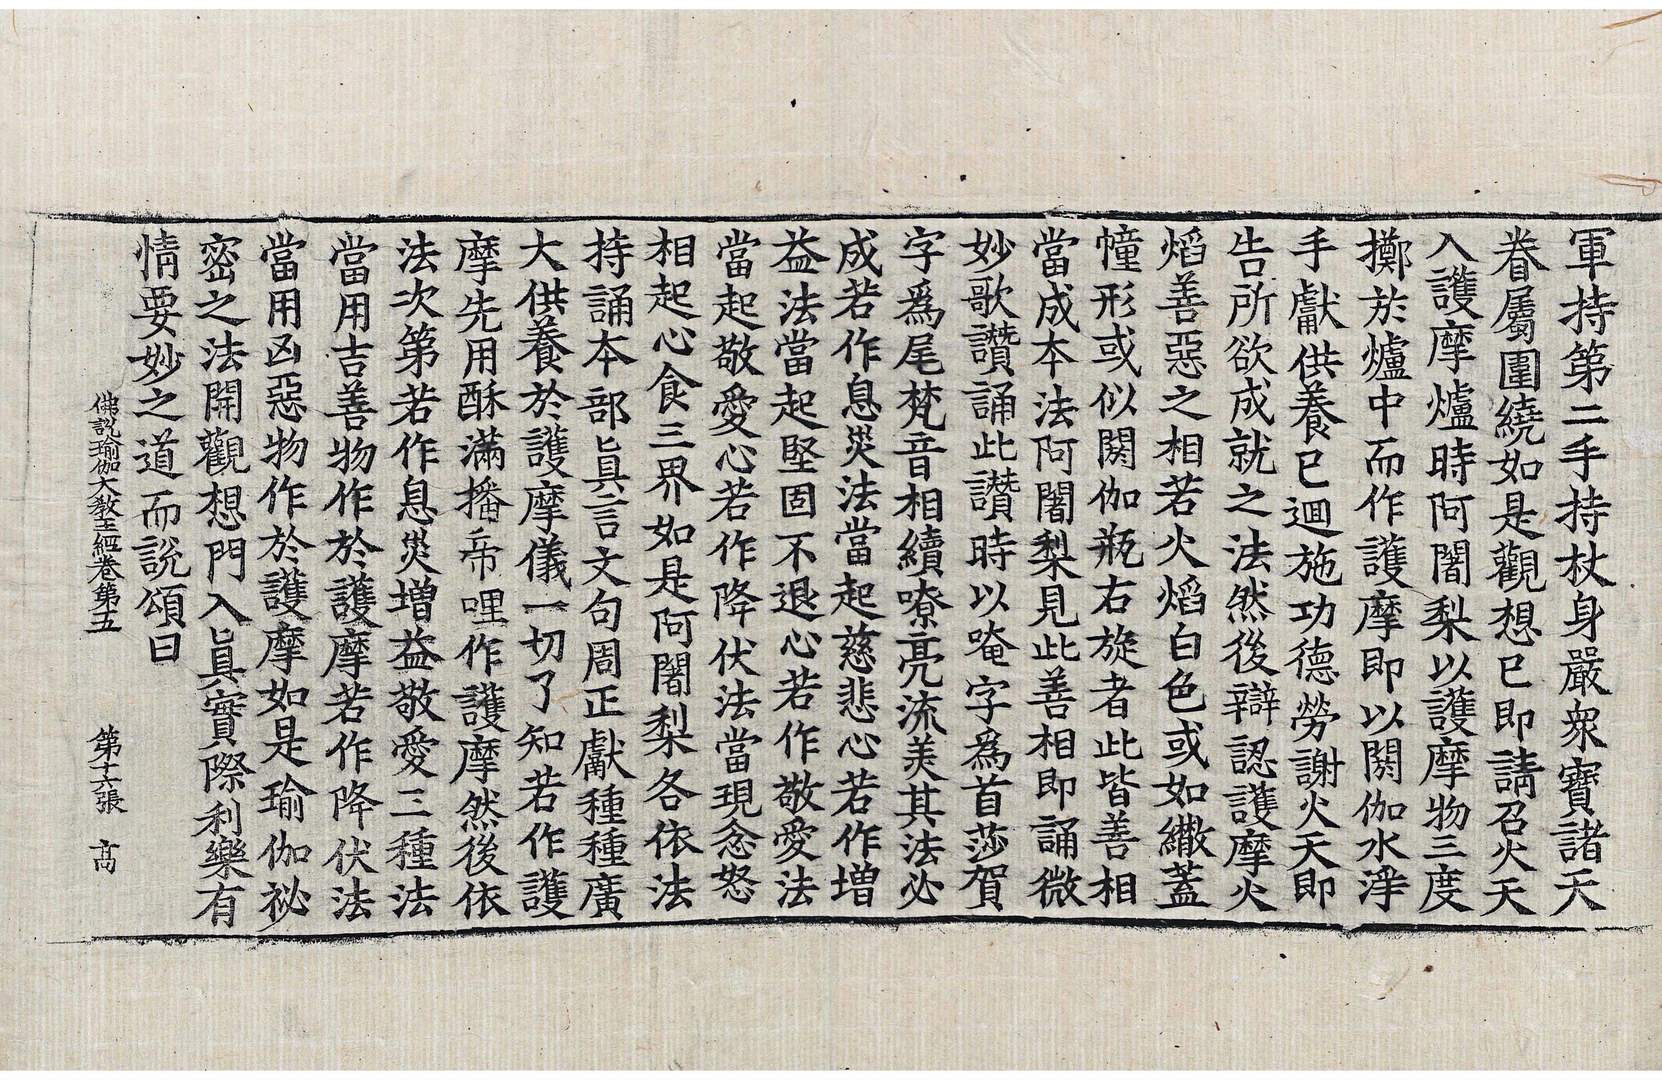 軍持第二手持杖身嚴衆寶諸天
眷屬圍繞如是觀想已即請召火天
入護摩爐時阿闍梨以護摩物三度
擲於爐中而作護摩即以閼伽水淨
手獻供養已迴施功德勞謝火天即
告所欲成就之法然後辯認護摩火
焰善惡之相若火焰白色或如繖蓋
幢形或似閼伽瓶右旋者此皆善相
當成本法阿闍梨見此善相即誦微
妙歌讚誦此讚時以唵字爲首莎賀
字爲尾梵音相續嘹亮流美其法必
成若作息災法當起慈悲心若作增
益法當起堅固不退心若作敬愛法
當起敬愛心若作降伏法當現忿怒
相起心食三界如是阿闍梨各依法
持誦本部眞言文句周正獻種種廣
大供養於護摩儀一切了知若作護
摩先用酥滿播帝哩作護摩然後依
法次第若作息災增益敬愛三種法
當用吉善物作於護摩若作降伏法
當用凶惡物作於護摩如是瑜伽祕
密之法開觀想門入眞實際利樂有
情要妙之道而說頌曰
佛說瑜伽大敎王經卷第五　第十六張　髙